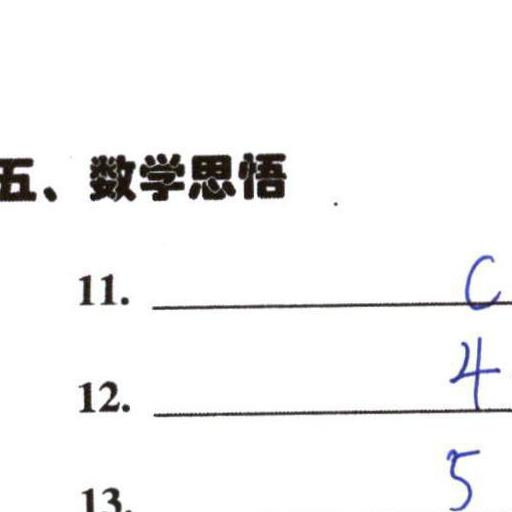 五、数学思悟
11. C
12. 4
13. 5